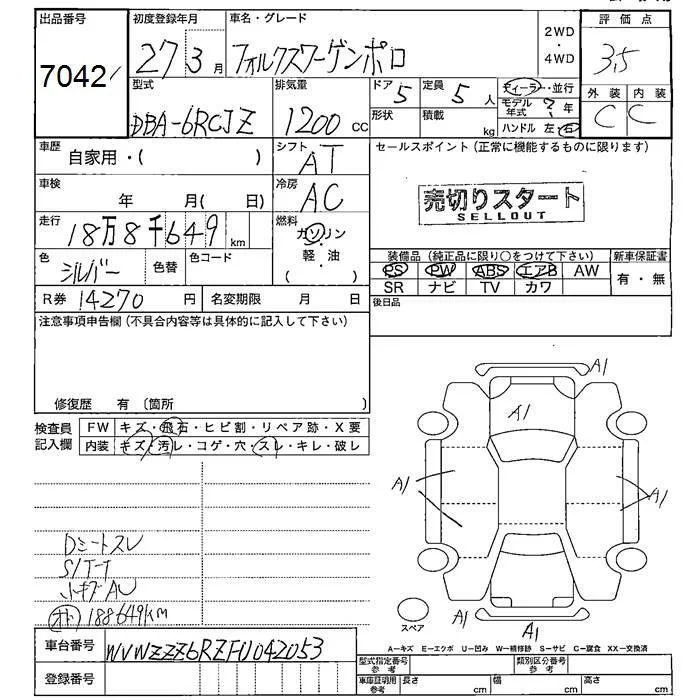 出品番号
7042
初度登録年月
27 3月
車名・グレード
フォルクスワーゲンポロ
2WD
・
4WD
評価点
3.5
外装 内装
C C
型式
DBA-6RCJZ
排気量
1200 cc
ドア
5
定員
5 人
形状
積載
kg
ディーラー・並行
モデル年式 ? 年
ハンドル 左・右
車歴
自家用・( )
シフト
AT
車検
年 月( 日)
冷房
AC
走行
18万8千649 km
燃料
ガソリン
軽・油
( )
色
シルバー
色替
色コード
R券 14270 円
名変期限 月 日
セールスポイント(正常に機能するものに限ります)
売切りスタート
SELLOUT
装備品(純正品に限り○をつけて下さい)
新車保証書
PS PW ABS エアB AW
有・無
SR ナビ TV カワ
後日品
注意事項申告欄(不具合内容等は具体的に記入して下さい)
修復歴 有(箇所 )
検査員
記入欄
FW キズ・飛石・ヒビ割・リペア跡・X要
内装 キズ・汚レ・コゲ・穴・スレ・キレ・破レ
Dシートスレ
S/T-T
188649km
A1
A1
A1
A1
A1
A1
スペア
A-キズ E-エクボ U-凹み W-補修跡 S-サビ C-腐食 XX-交換済
車台番号
WVWZZZ6RZFU042053
登録番号
型式指定番号
参考
類別区分番号
参考
車庫証明用
参考
長さ cm
幅 cm
高さ cm